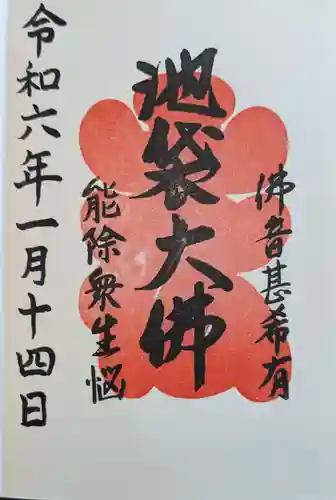 佛音甚希有
池袋大佛
能除衆生悩
令和六年一月十四日